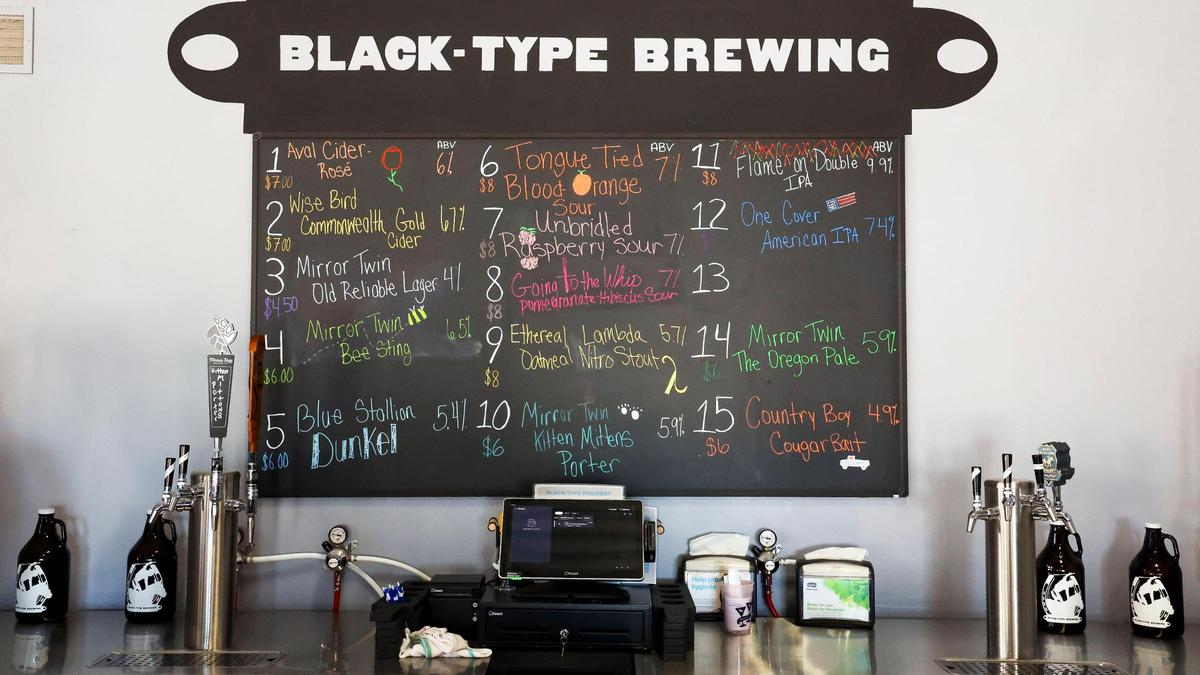 BLACK-TYPE BREWING
1 Aval Cider- ABV
Rosé 6%
$7.00
2 Wise Bird
Commonwealth Gold 6.7%
Cider
$7.00
3 Mirror Twin
Old Reliable Lager 4%
$4.50
4 Mirror Twin 6.5%
Bee Sting
$6.00
5 Blue Stallion 5.4%
Dunkel
$6.00
6 Tongue Tied ABV 7%
$8 Blood Orange
Sour
7 Unbridled
$8 Raspberry Sour 7%
8 Going to the Whip 7%
Pomegranate-Hibiscus Sour
$8
9 Ethereal Lambda 5.7%
Oatmeal Nitro Stout
$8
10 Mirror Twin 5.9%
$6 Kitten Mittens
Porter
11 Flame on Double ABV 9.9%
$8 IPA
12 One Cover
American IPA 7.4%
13
14 Mirror Twin 5.9%
The Oregon Pale
$6
15 Country Boy 4.9%
$6 Cougar Bait
Kitten
MITTONS
Porter
BLACK-TYPE BREWERY
toast
toast
Help pro
hygiene
Tork
Better for you.
Better for the planet.